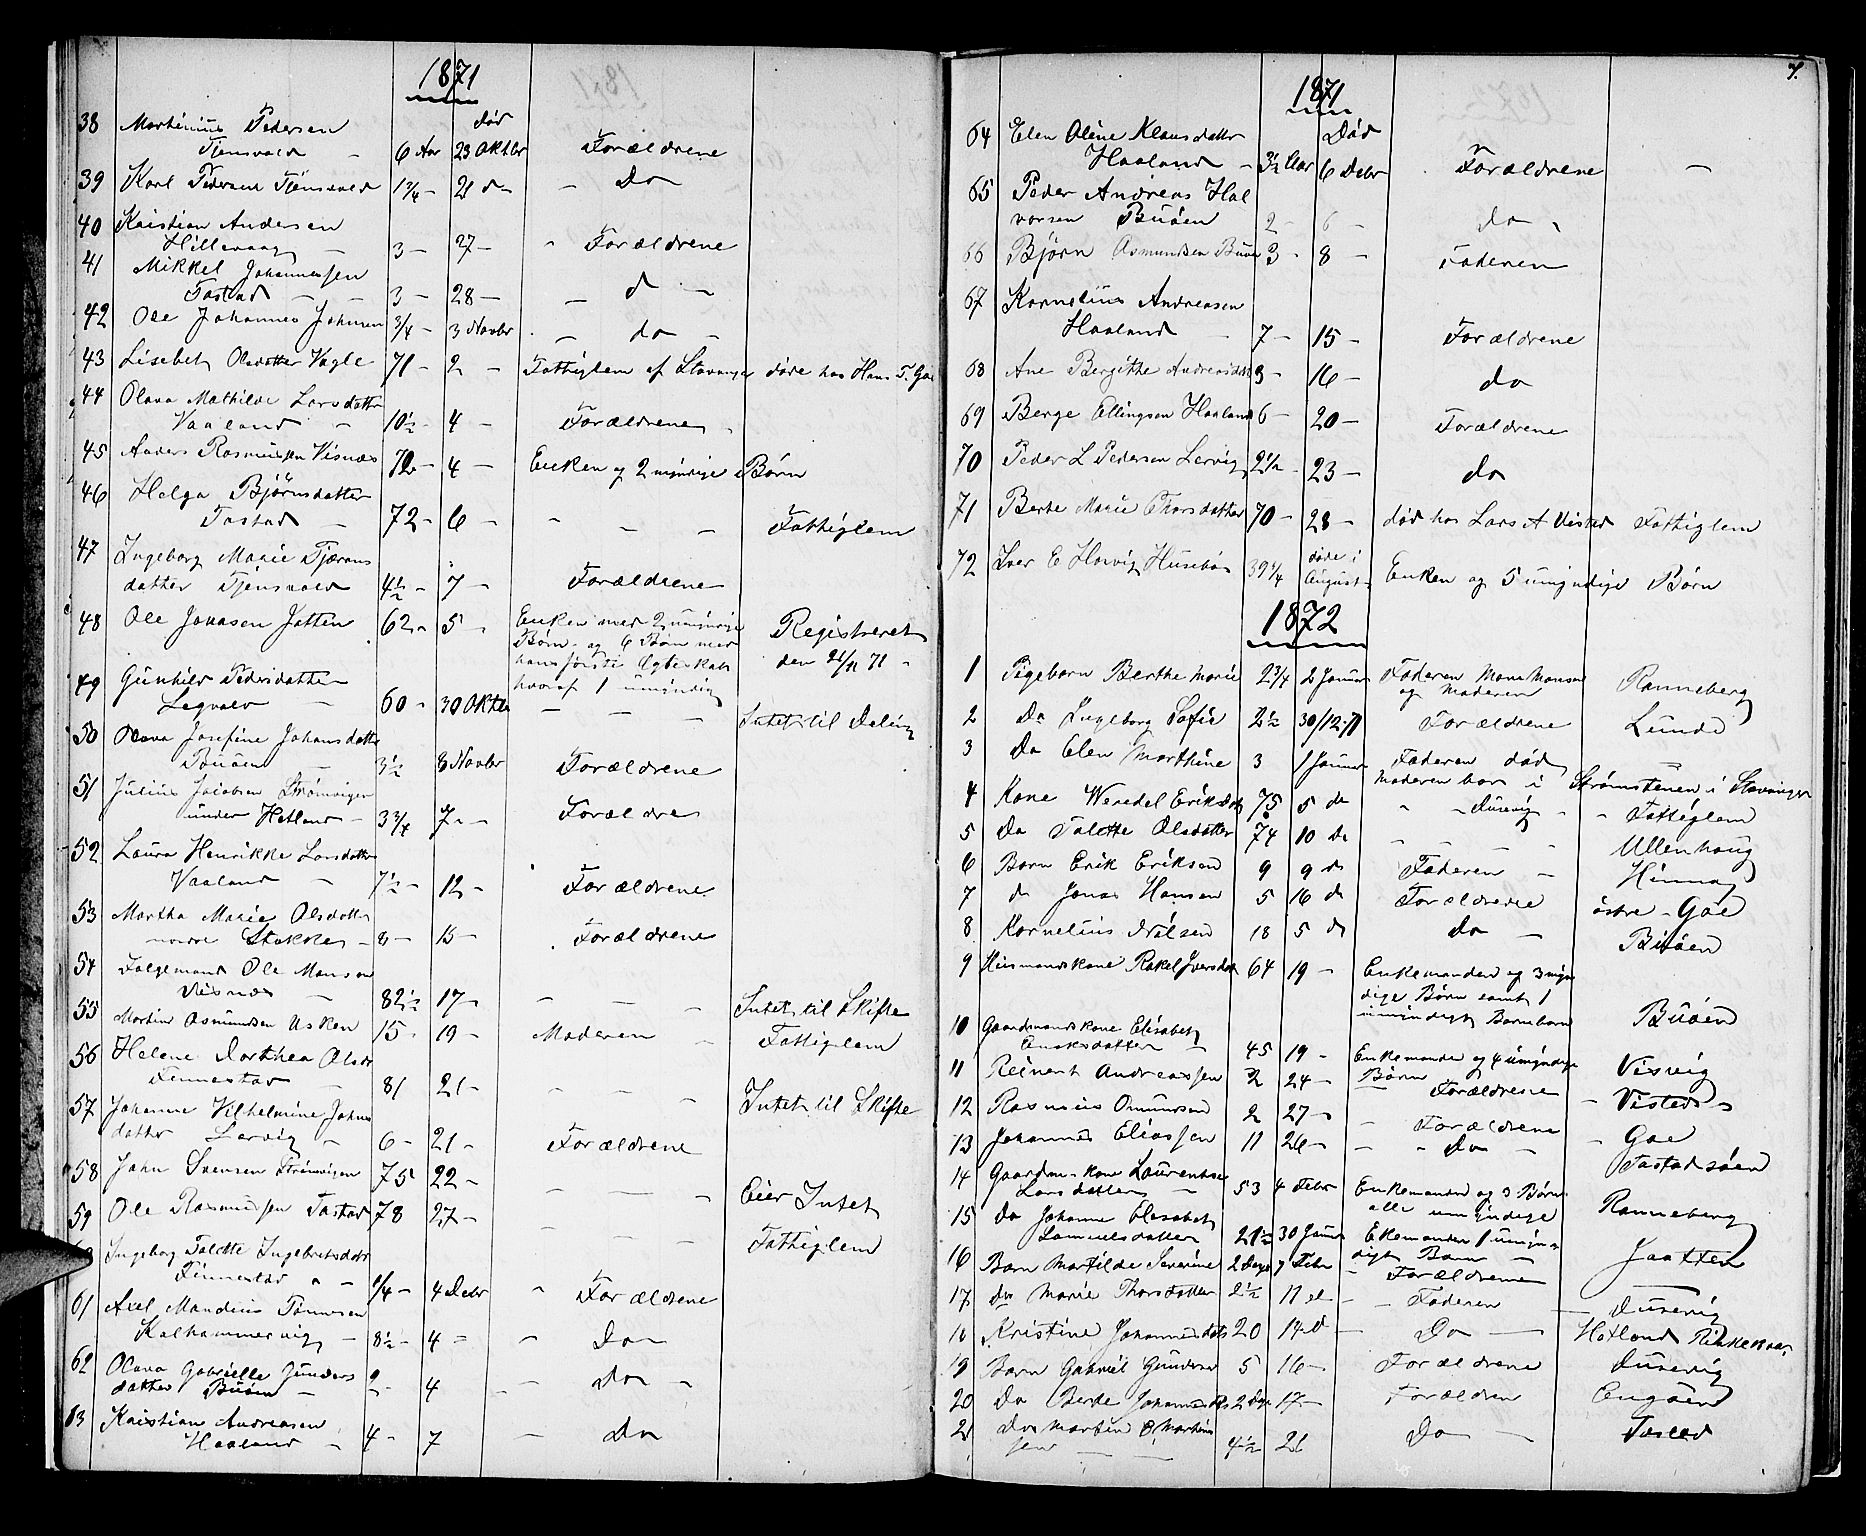 1871
død
38 Marthinius Pedersen
Tjensvold - 6 Aar 23 Oktbr Forældrene
39 Karl Pedersen Tjensvold 1 3/4 - 21 d - - Do
40 Kristian Andersen
Hillevaag - 3 - 27 - " Forældrene
41 Mikkel Johannessen
Tastad - - 3 - 28 - - d -
42 Ole Johannes Johnsen 3/4 - 3 Novbr - do -
43 Lisebet Olsdatter Vagle 71 - 2 - Fattiglem af Stavanger døde hos Hans T. Goe
44 Olava Mathilde Larsdatter
Vaaland - 10 1/2 - 4 - Forældrene
45 Anders Rasmussen Visnæs 72 - 4 - Enken og 2 myndige Børn
46 Helga Bjørnsdatter
Tastad - 72 - 6 - - - - Fattiglem
47 Ingeborg Marie Tjærans
datter Tjensvold 4 1/2 - 7 - Forældrene
48 Ole Jonasen Jotten 62 - 5 - Enken med 2 umyndige
Børn og 6 Børn med
hans første Egteskab
hvoraf 1 umyndig
Registreret
den 21/11 71
49 Gunhild Pedersdatter
Legvold - 60 - 30 Oktbr - - - Intet til Deling
50 Olava Josefine Johansdatter
Buøen - 3 1/2 8 Novbr Forældrene
51 Julius Jacobsen Strømvigen
under Hetland - 3 3/4 7 - - Forældre
52 Laura Henrikke Larsdatter
Vaaland - 7 1/2 - 12 - Forældrene
53 Martha Marie Olsdatter
nordre Stokke - 8 - 15 - Forældrene
54 Følgemand Ole Monsen
Visnæs - 82 1/2 17 - - - - Intet til Skifte
55 Martin Asmundsen Usken 15 - 19 - Moderen - Fattiglem
56 Helene Dorthea Olsdtr
Finnestad - 81 21 - - - - Intet til Skifte
57 Johanne Vilhelmine Johns
datter Lervig - 6 - 21 - Forældrene
58 John Svensen Strømvigen 75 22 - - - - Eier Intet
59 Ole Rasmussen Tastad 78 27 - - - - Fattiglem
Ingeborg Talette Ingebretsdatr
Finnestad - 1/4 - 4 Debr - Forældrene
61 Axel Mandius Tønnesen
Kalhammervig - 8 1/2 - 4 - - Do -
62 Olava Gabrielle Gunders
datter Buøen - 2 - 4 - - Do -
63 Kristian Andreasen
Haaland - 4 - 7 - Do

7.
1871
Død
64 Elen Oline Klausdatter
Haaland - 3 1/2 Aar 6 Debr Forældrene -
65 Peder Andreas Hal
vorsen Buøen 2 - 6 - do
66 Bjørn Asmundsen Buøen 3 - 8 - Faderen
67 Kornelius Andreasen
Haaland - 7 - 15 - Forældrene
68 Ane Bergithe Andreasdatr 3 - 16 - do
69 Berge Ellingsen Haaland 6 - 20 - Forældrene
70 Peder L Pedersen Lervig 2 1/2 - 23 - do
71 Berte Marie Thorsdatter 70 - 28 - død hos Lars A Visted Fattiglem
72 Iver E Horvig Husebø 39 1/4 døde i
August Enken og 5 umyndige Børn
1872
1 Pigebarn Berthe Marie 2 3/4 2 Januar Faderen Mons Monsen
og Moderen Ranneberg
2 Do Ingeborg Sofie 2 1/2 30/12 71 Forældrene Lunde
3 Do Elen Marthine 3 1 Januar Faderen død
Moderen bor i Strømstenen i Stavanger
4 Kone Weredel Eriksdtr 75 5 do " - Dusevig - Fattiglem
5 Do Talette Olsdatter 74 10 Do - - - - Ullenhaug
6 Barn Erik Eriksen 9 9 do Faderen - Hinna
7 d Jonas Hansen 5 16 do Forældrene østre - Goe
8 Kornelius 18 5 do Do - Buøen
9 Husmandskone Rakel Iversdtr 64 19 - Enkemanden og 3 myn
dige Børn samt 1
umyndigt Barnebarn Buøen
10 Gaardmandskone Elisabet
datter - 45 19 - Enkemanden og 4 umyndige
Børn Visvig
11 Reinert Andreassen 2 24 - Forældrene - Visted
12 Rasmus Omundsen 2 27 - - Forældrene - Goe
13 Johannes Eliassen 11 26 - - Do - Tastadsøen
14 Gaardm.kone Laurentse
Larsdatter - 53 4 Febr Enkemanden og 3 Børn
alle umyndige Ranneberg
15 Do Johanne Elisabet
Samuelsdatter 21 1/2 30 Januar Ekemanden 1 umyn
digt Barn - Jaatten
16 Barn Martilde Severine 2 Dage 7 Febr - Forældrene
17 do Marie Thorsdatter 2 1/2 11 d - - Faderen - Dusevig
18 Kristine Johannesdatr 20 14 d - Do - Hetland
19 Barn Gabriel Gundersen 5 16 - Forældrene Dusevig
20 Do Berte Johannesdtr 2 Dage 17 - Forældren Engøen
21 Do Martin O Martin
sen - 4 1/2 21 Do - Tasted